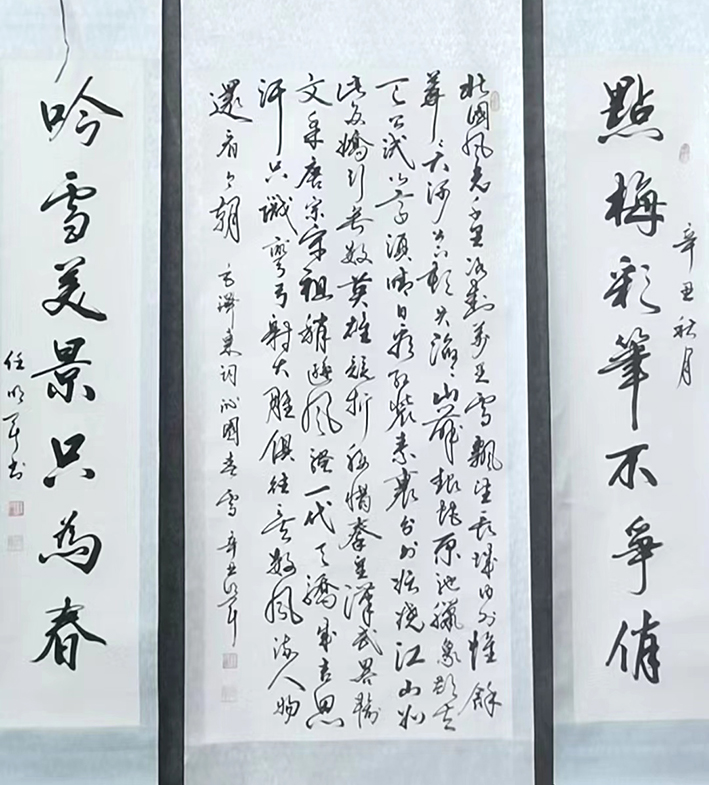 辛丑秋月
點梅彩筆不爭俏
北國風光千里冰封萬里雪飄望長城内外惟餘
莽々大河上下頓失滔々山舞銀蛇原馳臘象欲与
天公試比高須晴日看紅裝素裹分外妖嬈江山如
此多嬌引無數英雄競折腰惜秦皇漢武畧輸
文采唐宗宋祖稍遜風騷一代天驕成吉思
汗只識彎弓射大雕俱往矣數風流人物
還看今朝 毛澤東詞沁園春雪 辛丑明軍
吟雪美景只為春
任明軍书